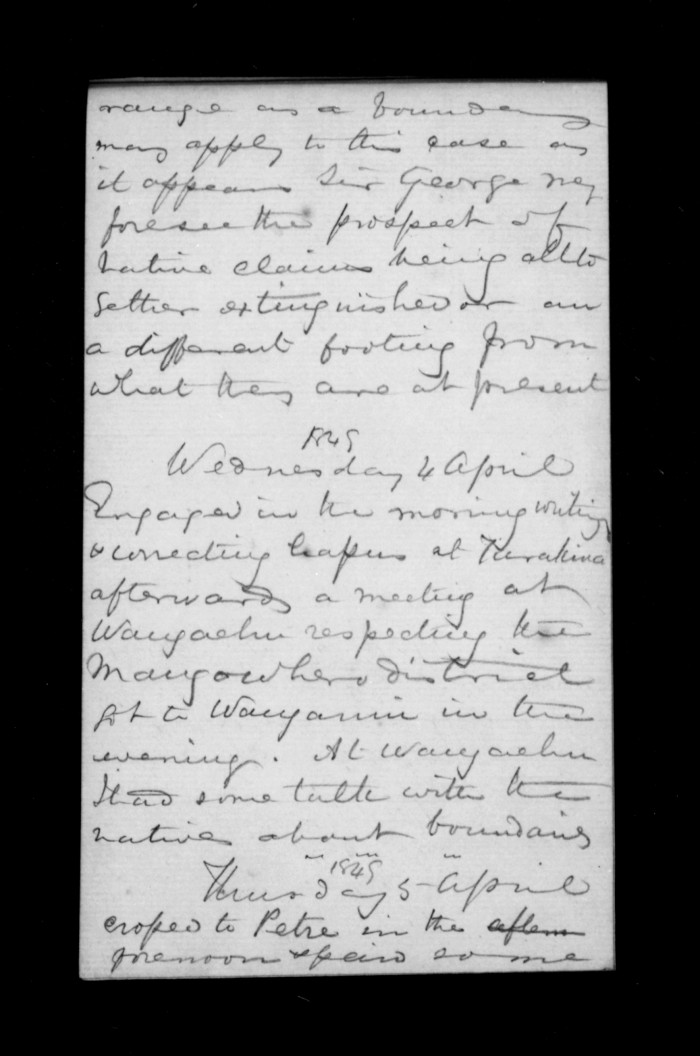 range as a boundary
may apply to this case as
it appears Sir George may
foresee the prospect of
native claims being alto
gether extinguished or on
a different footing from
what they are at present
1849
Wednesday 4 April
Engaged in the morning writing
& correcting papers at Turakina
afterwards a meeting at
Wangaehu respecting the
Mangawhero district
got to Wanganui in the
evening. At Wangaehu
I had some talk with the
natives about boundaries
1849
Thursday 5 April
crossed to Petre in the aftern
forenoon & paid some